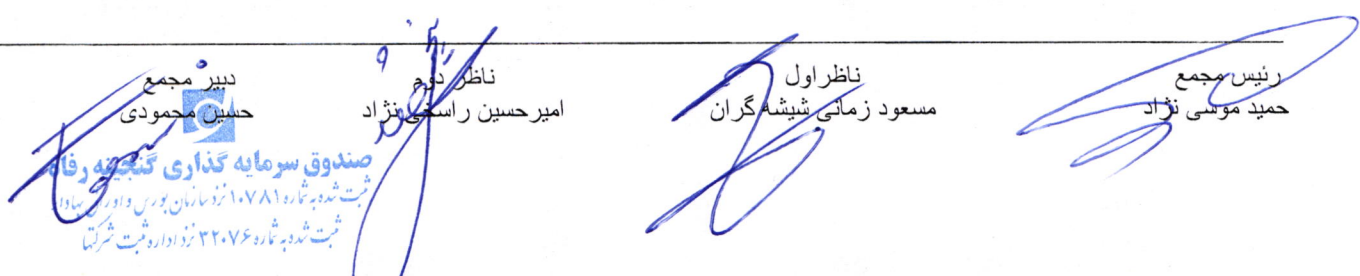 رئیس مجمع
حمید موسی نژاد
ناظر اول
مسعود زمانی شیشه گران
ناظر دوم
امیرحسین راسخی نژاد
دبیر مجمع
حسین محمودی
صندوق سرمایه گذاری گنجینه رفاه
ثبت شده به شماره ۱۰۷۸۱ نزد سازمان بورس و اوراق بهادار
ثبت شده به شماره ۳۲۰۷۶ نزد اداره ثبت شرکتها